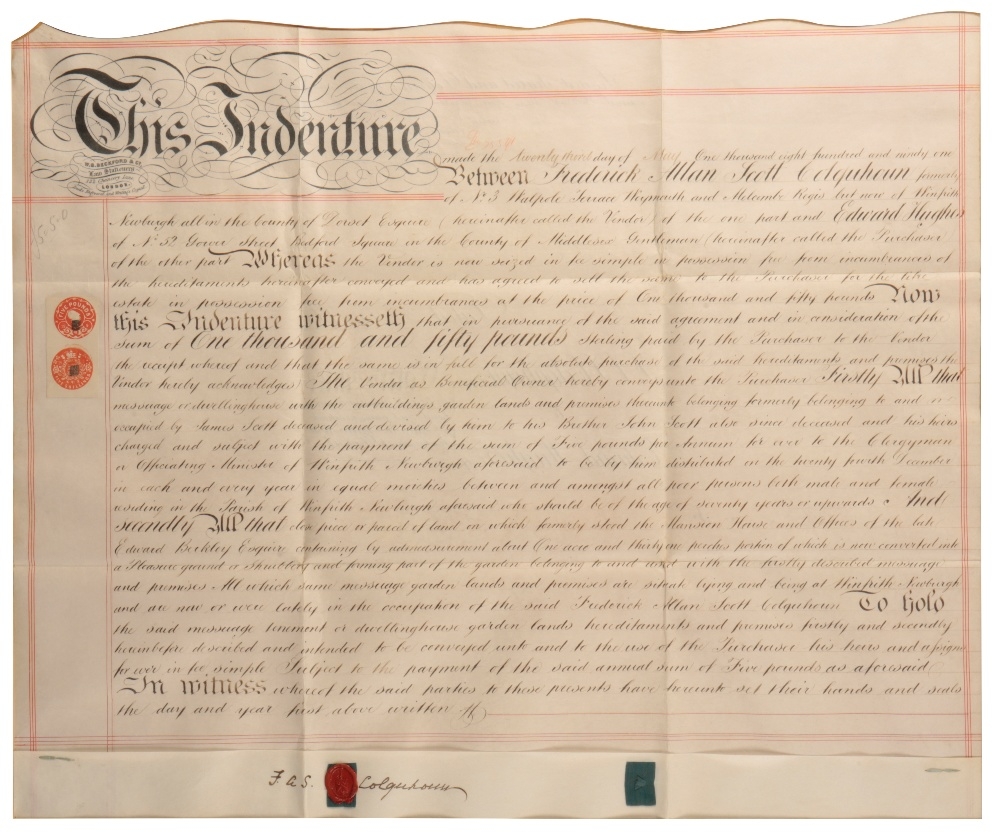 This Indenture
W. O. BECKFORD & Co
Law Stationers
LONDON
made the twenty third day of May One thousand eight hundred and ninety one
Between Frederick Allan Scott Colquhoun formerly
of No 3 Walpole Terrace Weymouth and Melcombe Regis but now of Winfrith
Newburgh all in the County of Dorset Esquire (hereinafter called the Vendor) of the one part and Edward Hughes
of No 52 Gower Street Bedford Square in the County of Middlesex Gentleman (hereinafter called the Purchaser
of the other part Whereas the Vendor is now seized in fee simple in possession free from incumbrances of
the hereditaments hereinafter conveyed and has agreed to sell the same to the Purchaser for the like
estate in possession free from incumbrances at the price of One thousand and fifty pounds Now
this Indenture witnesseth that in pursuance of the said agreement and in consideration of the
sum of One thousand and fifty pounds sterling paid by the Purchaser to the Vendor
the receipt whereof and that the same is in full for the absolute purchase of the said hereditaments and premises the
Vendor hereby acknowledges The Vendor as Beneficial Owner hereby conveys unto the Purchaser Firstly All that
messuage or dwellinghouse with the outbuildings garden lands and premises thereunto belonging formerly belonging to and
occupied by James Scott deceased and devised by him to his Brother John Scott also since deceased and his heirs
charged and subject with the payment of the sum of Five pounds per Annum for ever to the Clergyman
or Officiating Minister of Winfrith Newburgh aforesaid to be by him distributed on the twenty fourth December
in each and every year in equal moieties between and amongst all poor persons both male and female
residing in the Parish of Winfrith Newburgh aforesaid who should be of the age of seventy years or upwards And
secondly All that close piece or parcel of land on which formerly stood the Mansion House and Offices of the late
Edward Berkley Esquire containing by admeasurement about One acre and thirty one perches portion of which is now converted into
a Pleasure ground or Shrubbery and forming part of the garden belonging to and used with the firstly described messuage
and premises All which same messuage garden lands and premises are situate lying and being at Winfrith Newburgh
and are now or were lately in the occupation of the said Frederick Allan Scott Colquhoun To hold
the said messuage tenement or dwellinghouse garden lands hereditaments and premises firstly and secondly
hereinbefore described and intended to be conveyed unto and to the use of the Purchaser his heirs and assigns
for ever in fee simple Subject to the payment of the said annual sum of Five pounds as aforesaid
In witness whereof the said parties to these presents have hereunto set their hands and seals
the day and year first above written
F. A. S. Colquhoun